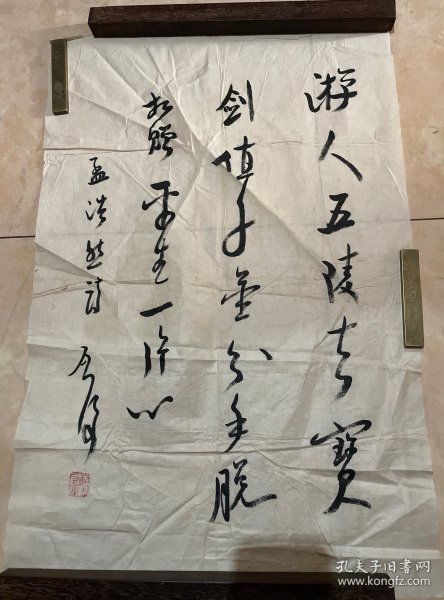 游人五陵去寶
剑值千金分手脱
相赠平生一片心
孟浩然詩
孔夫子旧书网
www.kongfz.com